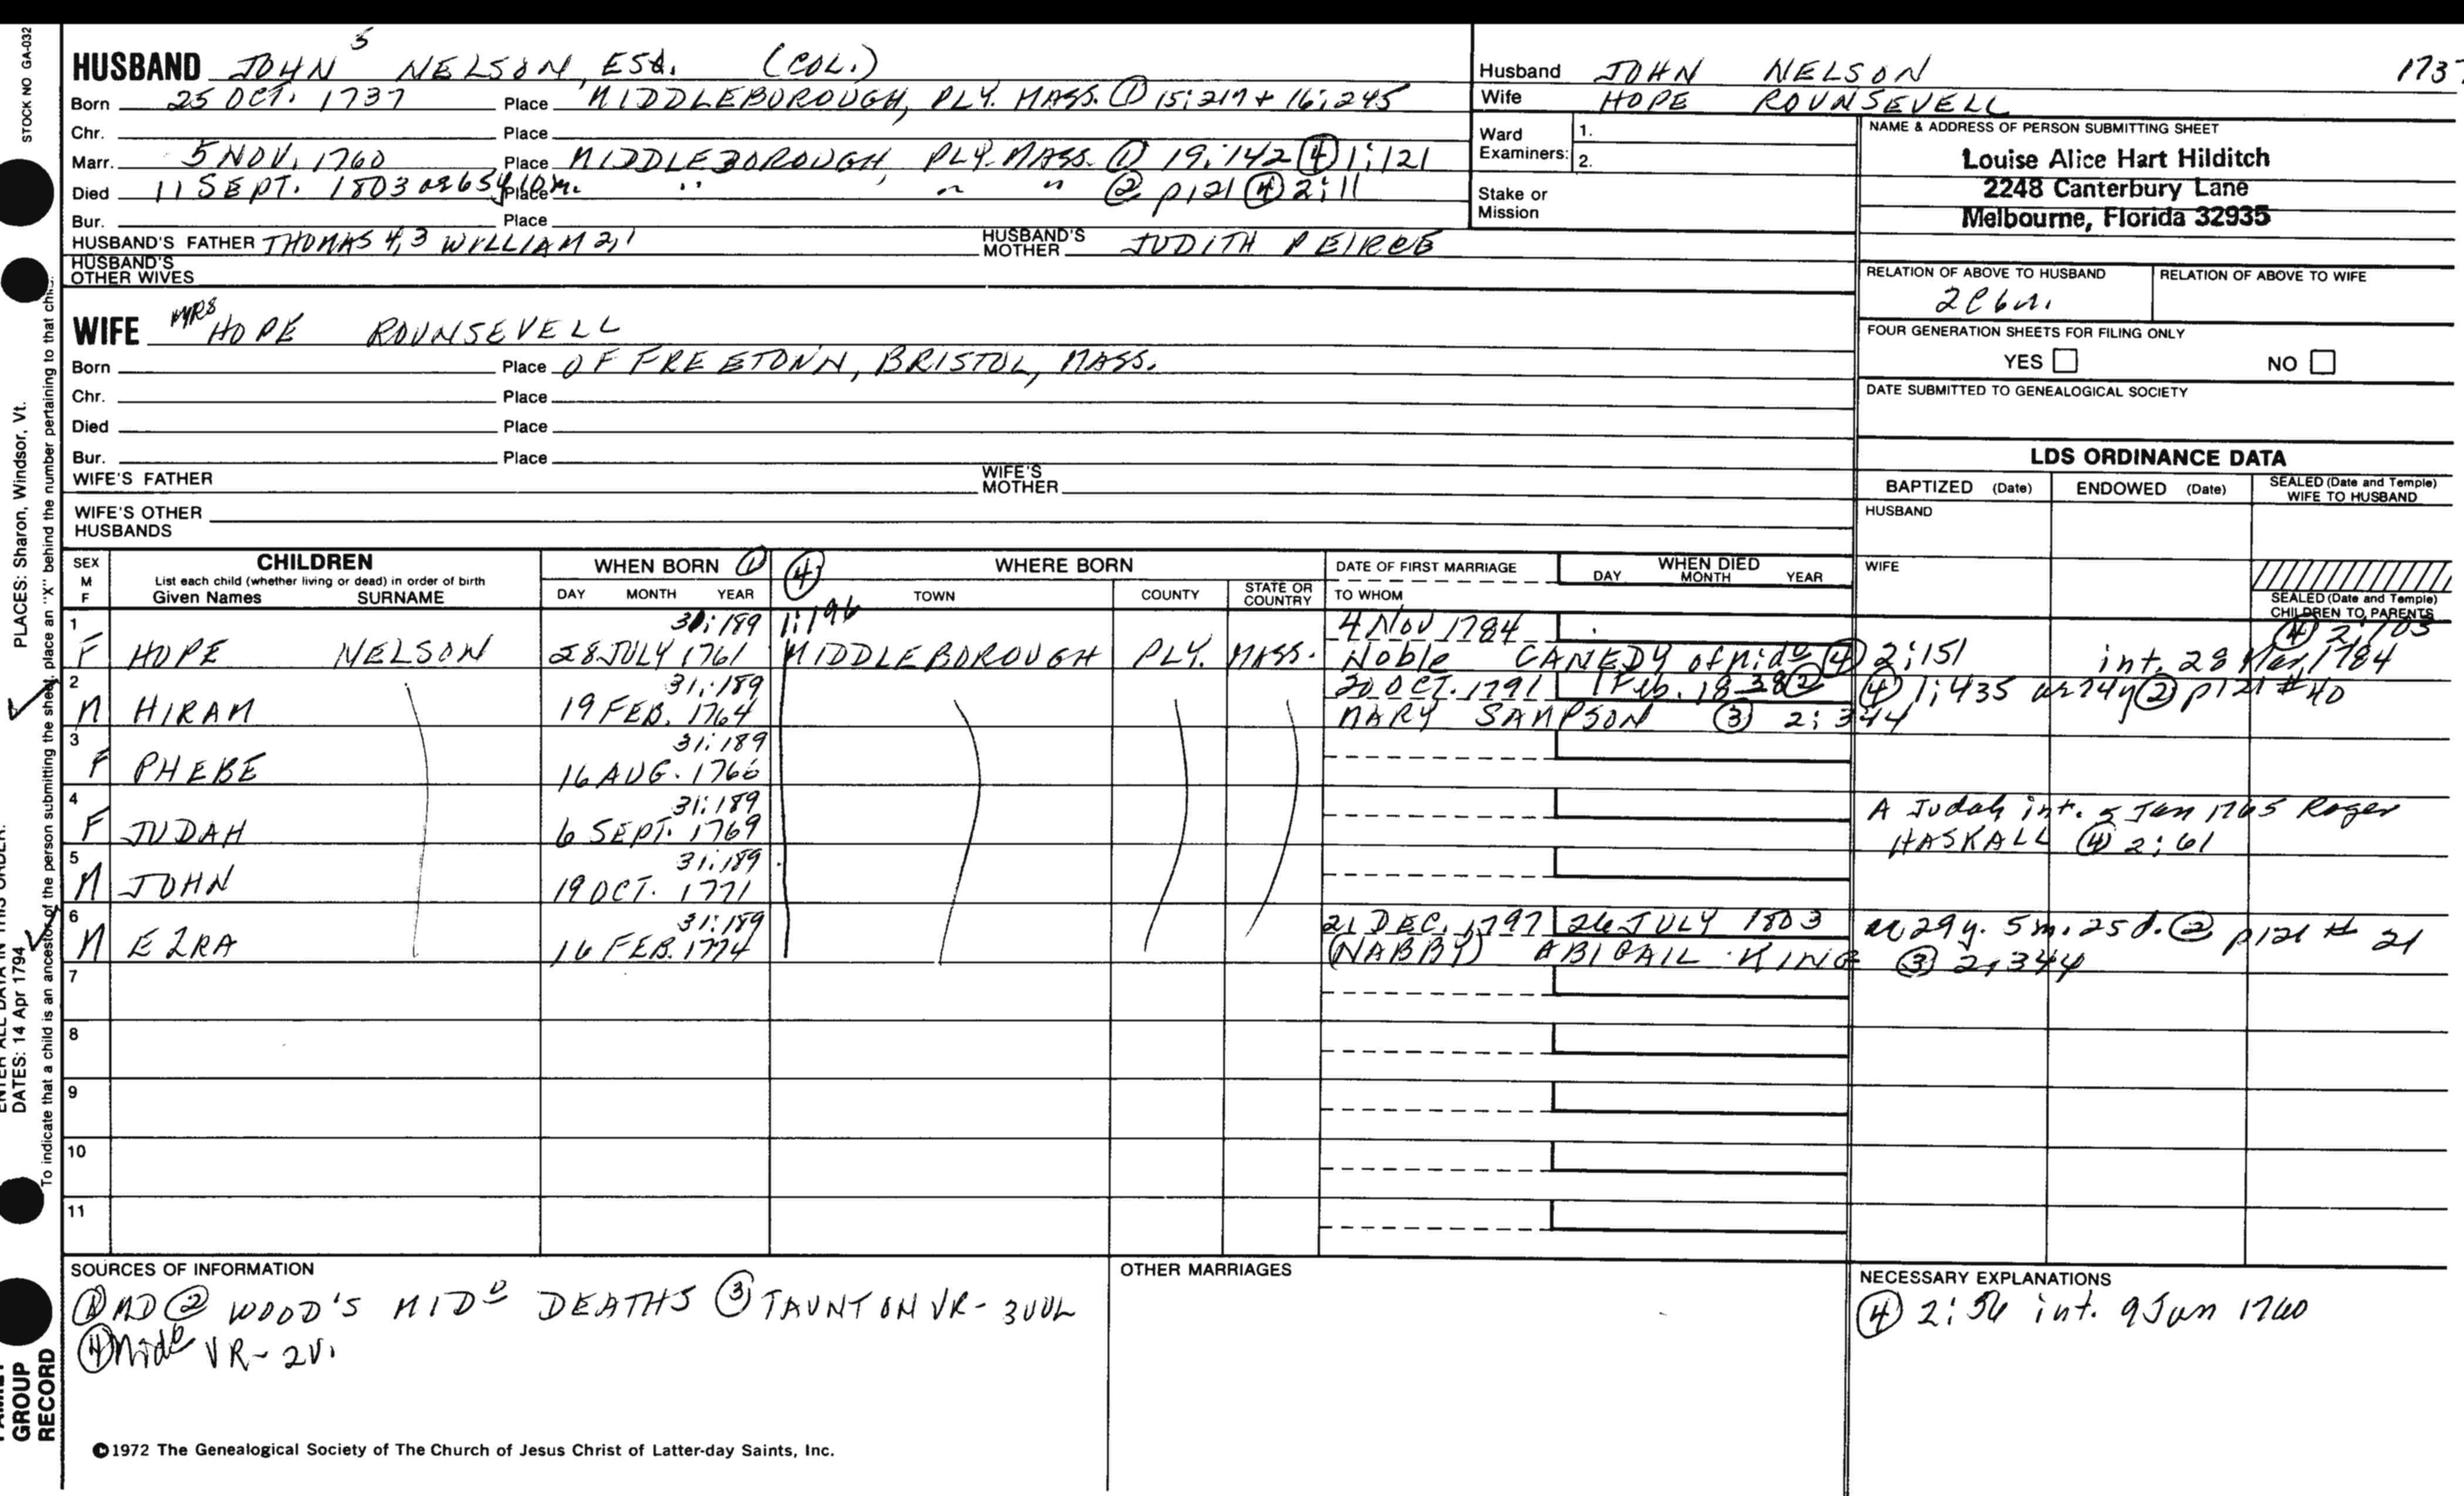 STOCK NO GA-032
HUSBAND JOHN 5 NELSON, ESQ. (COL.)
Born 25 OCT. 1737 Place MIDDLEBOROUGH, PLY. MASS. ① 15:217 + 16:245
Chr. Place
Marr. 5 NOV. 1760 Place MIDDLEBOROUGH, PLY. MASS. ① 19:142 ④ 1:121
Died 11 SEPT. 1803 ae 65y 10m. Place " " " ② p121 ④ 2:11
Bur. Place
HUSBAND'S FATHER THOMAS 4,3 WILLIAM 2,1 HUSBAND'S MOTHER JUDITH PEIRCE
HUSBAND'S OTHER WIVES
WIFE MRS HOPE ROUNSEVELL
Born Place OF FREETOWN, BRISTOL, MASS.
Chr. Place
Died Place
Bur. Place
WIFE'S FATHER WIFE'S MOTHER
WIFE'S OTHER HUSBANDS
Husband JOHN NELSON 1737
Wife HOPE ROUNSEVELL
Ward Examiners: 1.
2.
Stake or Mission
NAME & ADDRESS OF PERSON SUBMITTING SHEET
Louise Alice Hart Hilditch
2248 Canterbury Lane
Melbourne, Florida 32935
RELATION OF ABOVE TO HUSBAND RELATION OF ABOVE TO WIFE
2C6m.
FOUR GENERATION SHEETS FOR FILING ONLY
YES NO
DATE SUBMITTED TO GENEALOGICAL SOCIETY
LDS ORDINANCE DATA
BAPTIZED (Date) ENDOWED (Date) SEALED (Date and Temple) WIFE TO HUSBAND
HUSBAND
WIFE
SEALED (Date and Temple) CHILDREN TO PARENTS
SEX M F CHILDREN WHEN BORN ① ④ WHERE BORN DATE OF FIRST MARRIAGE WHEN DIED
List each child (whether living or dead) in order of birth
Given Names SURNAME DAY MONTH YEAR TOWN COUNTY STATE OR COUNTRY TO WHOM DAY MONTH YEAR
1 31:189 1:196 4 Nov 1784 ④ 2:103
F HOPE NELSON 28 JULY 1761 MIDDLEBOROUGH PLY. MASS. Noble CANEDY of Mido ④ 2:151 int. 28 Mar. 1784
2 31:189 20 OCT. 1791 1 Feb. 1838 ② ④ 1:435 ae 74y ② p121 #40
M HIRAM 19 FEB. 1764 MARY SAMPSON ③ 2:344
3 31:189
F PHEBE 16 AUG. 1766
4 31:189 A Judah int. 5 Jan 1765 Roger
F JUDAH 6 SEPT. 1769 HASKALL ④ 2:61
5 31:189
M JOHN 19 OCT. 1771
6 31:189 21 DEC. 1797 26 JULY 1803 ae 29y. 5m. 25d. ② p121 # 21
M EZRA 16 FEB. 1774 (NABBY) ABIGAIL KING ③ 2:344
7
8
9
10
11
SOURCES OF INFORMATION
① MD ② WOOD'S MIDo DEATHS ③ TAUNTON VR - 3VOL
④ Mido VR - 2V.
OTHER MARRIAGES
NECESSARY EXPLANATIONS
④ 2:56 int. 9 Jan 1760
©1972 The Genealogical Society of The Church of Jesus Christ of Latter-day Saints, Inc.
PLACES: Sharon, Windsor, Vt.
ENTER ALL DATA IN THIS ORDER:
DATES: 14 Apr 1794
To indicate that a child is an ancestor of the person submitting the sheet, place an "X" behind the number pertaining to that child.
FAMILY
GROUP
RECORD